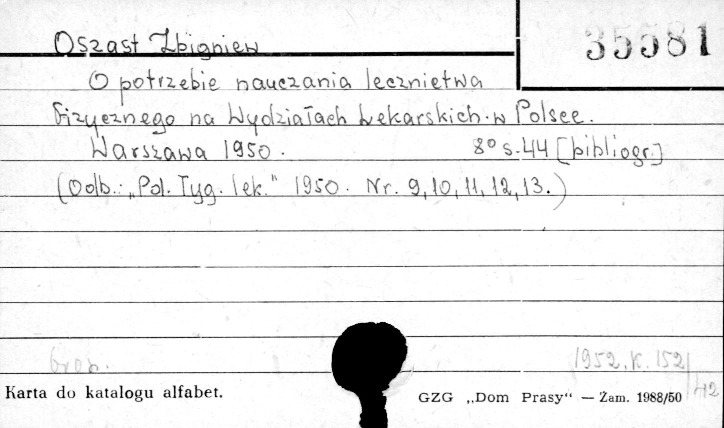 35581
Oszast Zbigniew
O potrzebie nauczania lecznictwa
fizycznego na Wydziałach Lekarskich w Polsce.
Warszawa 1950. 8° s. 44 [bibliogr.]
(Odb.: „Pol. Tyg. lek." 1950. Nr. 9, 10, 11, 12, 13.)
1952. K. 152/
Karta do katalogu alfabet.
GZG „Dom Prasy“ — Zam. 1988/50